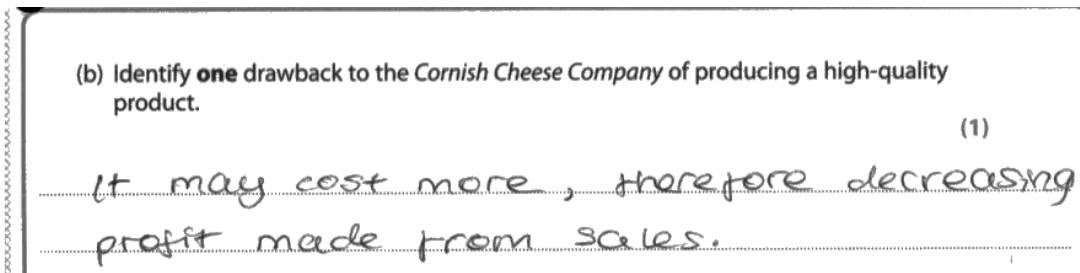 (b) Identify one drawback to the Cornish Cheese Company of producing a high-quality
product.
(1)
It may cost more, therefore decreasing
profit made from sales.